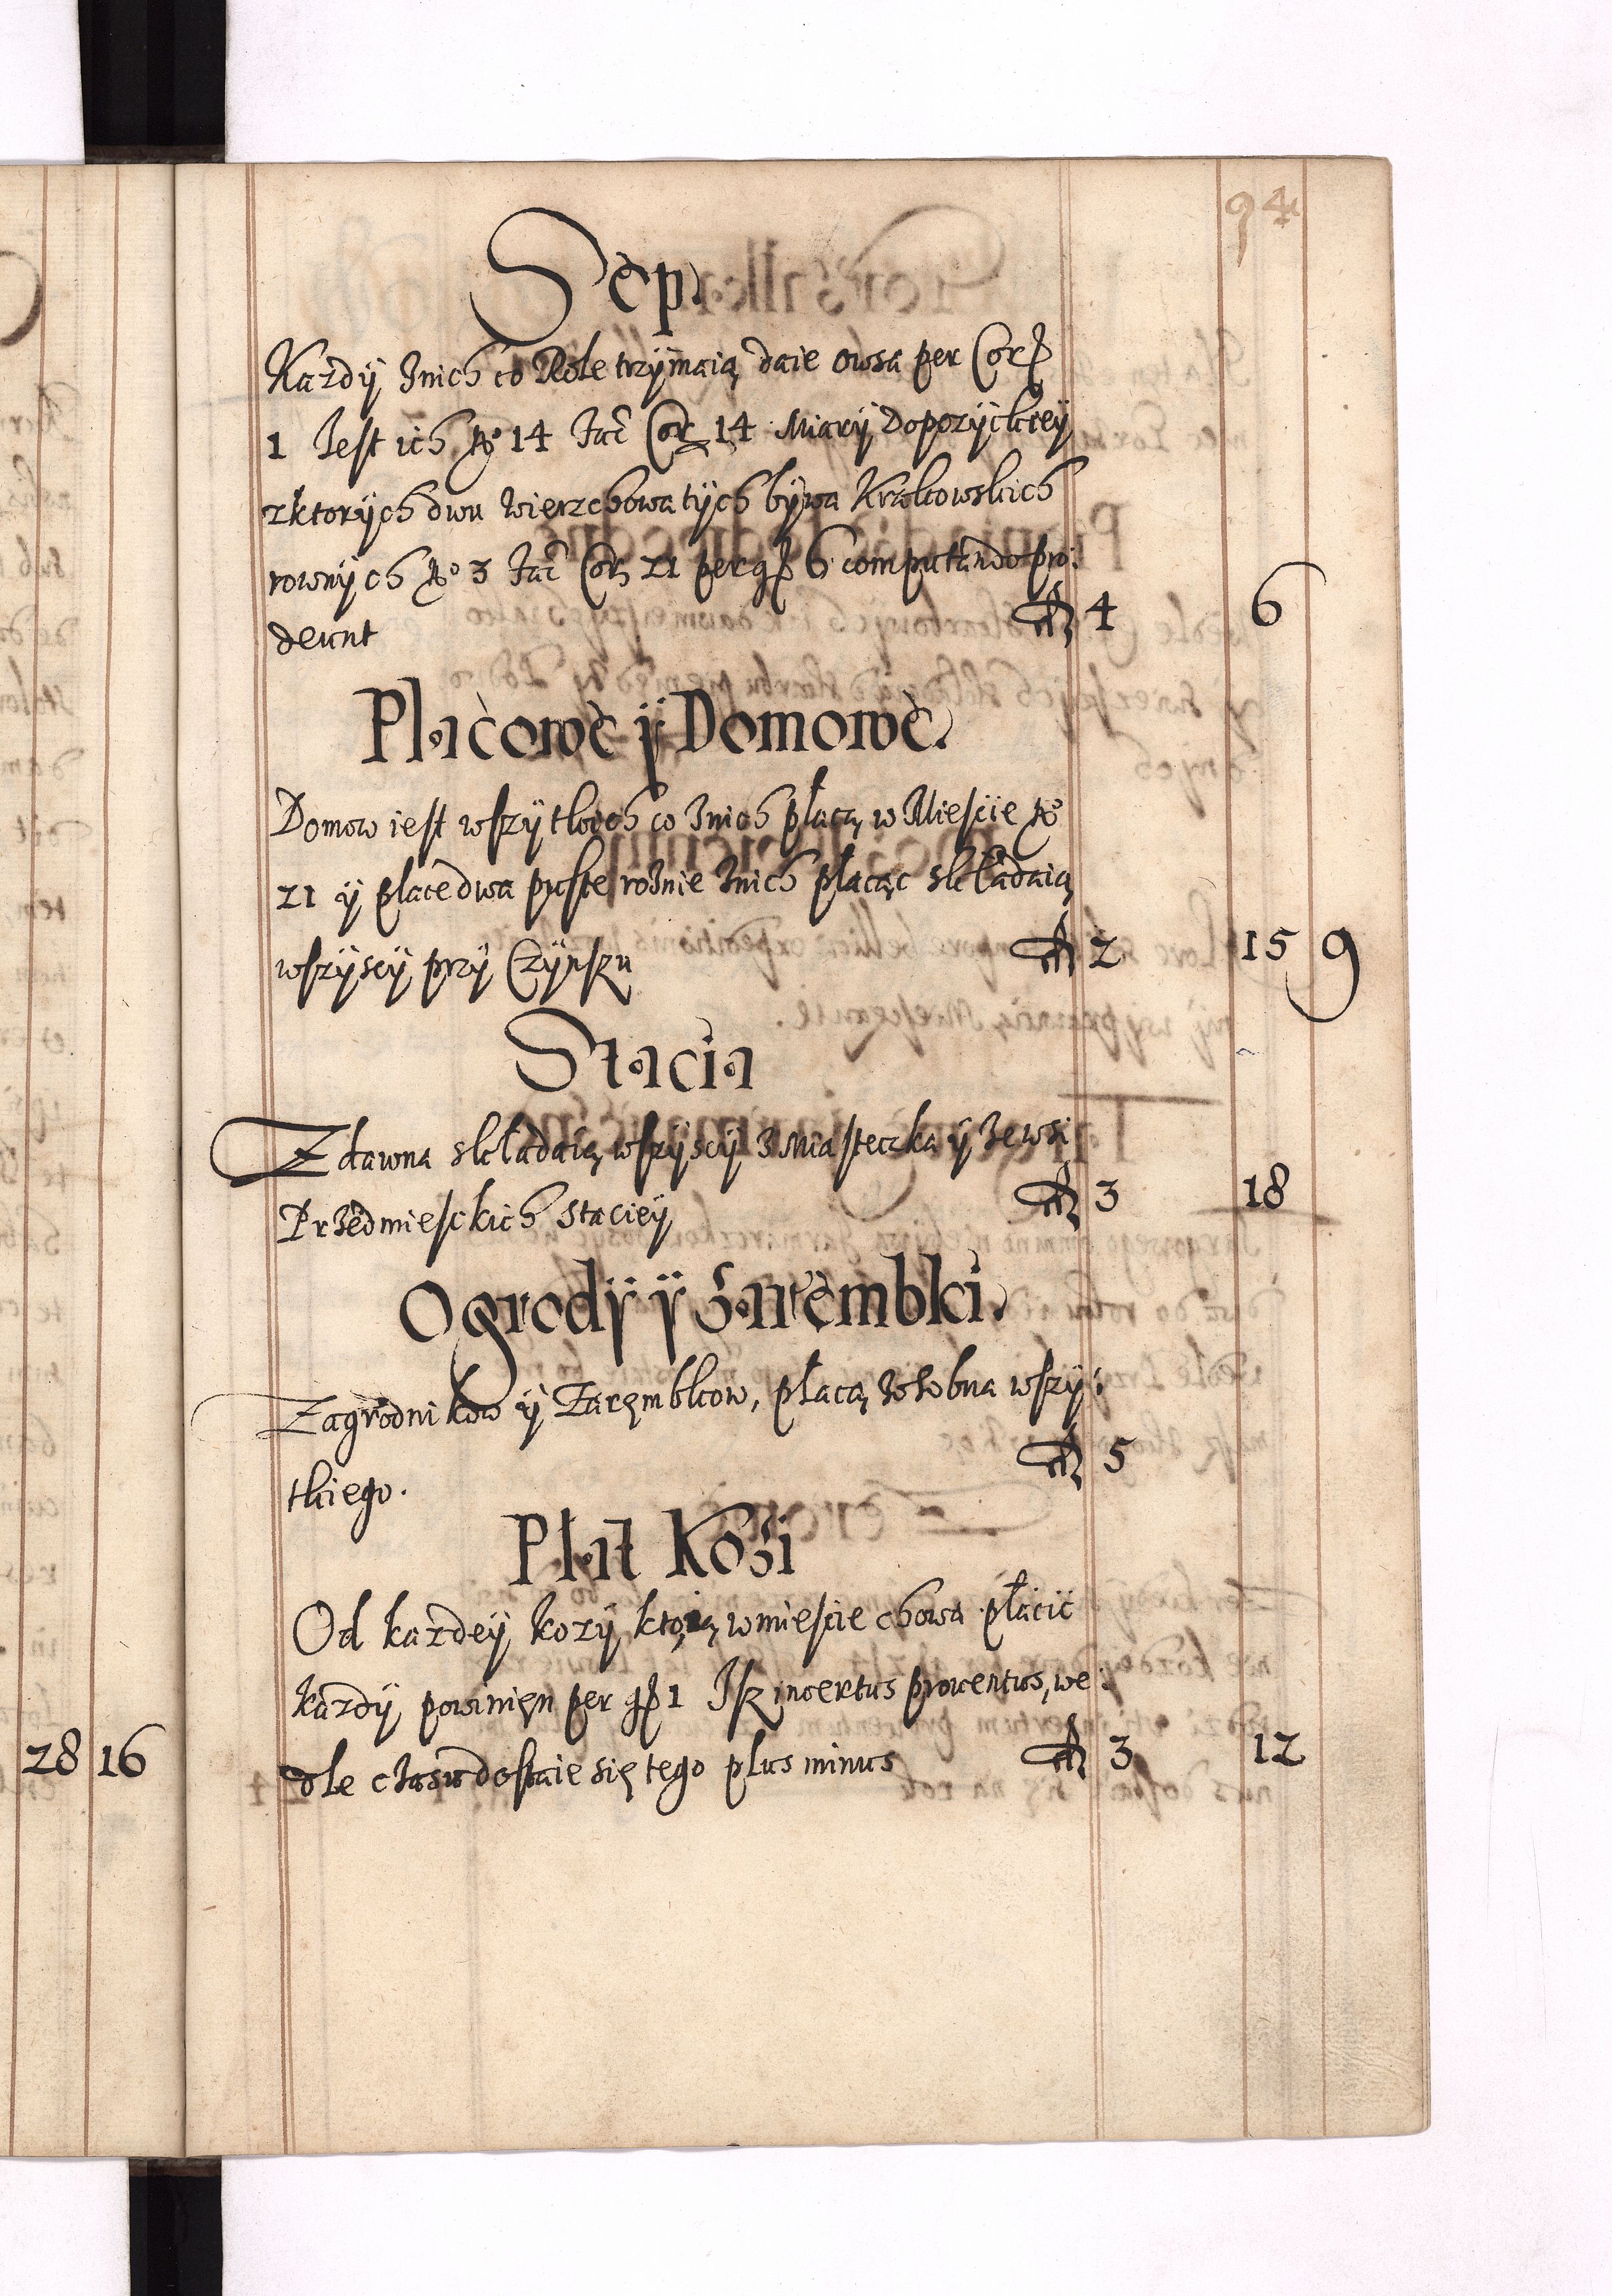 94
Sep.
Kazdÿ Znich co Role trzÿmaią daie owsa per Cor
1 Iest ich No 14 fac Cor 14 Miarÿ Dopozÿckieÿ
zktorÿch dwu wierzchowatÿch bÿwa Krakowskich
rownÿch No 3 fac Cor 21 per gr 6 computando pro:
deunt 4 6
Placowe ÿ Domowe.
Domow iest wszÿtkich co Znich płacą w Mieście No
21 ÿ place dwa puste rożnie Znich płacąc składaią
wszÿscÿ przÿ Czÿnszu 2 15 9
Stacia
Zdawna składaią wszÿscÿ Z Miasteczka ÿ Zewsi
Przedmiesckich Stacieÿ 3 18
Ogrodÿ ÿ Zarembki.
Zagrodnikow ÿ Zarembkow, płacą Zosobna wszÿ:
tkiego. 5
Płat Kozi
Od kazdeÿ kozÿ, ktorą wmieście chowa płacić
kazdÿ powinien per gr 1 Isz incertus prouentus, we:
dle czasu dostaie się tego plus minus 3 12
28 16